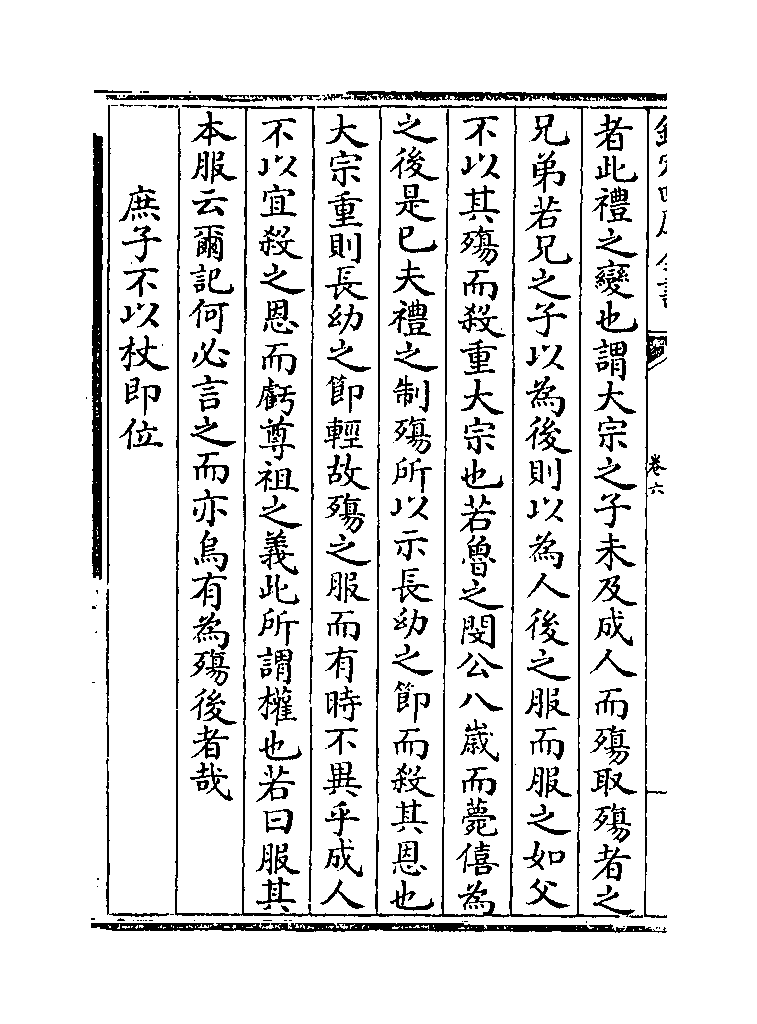 欽定四庫全書
卷六
者此禮之變也謂大宗之子未及成人而殤取殤者之
兄弟若兄之子以為後則以為人後之服而服之如父
不以其殤而殺重大宗也若魯之閔公八歲而薨僖為
之後是已夫禮之制殤所以示長幼之節而殺其恩也
大宗重則長幼之節輕故殤之服而有時不異乎成人
不以宜殺之恩而虧尊祖之義此所謂權也若曰服其
本服云爾記何必言之而亦烏有為殤後者哉
庶子不以杖即位